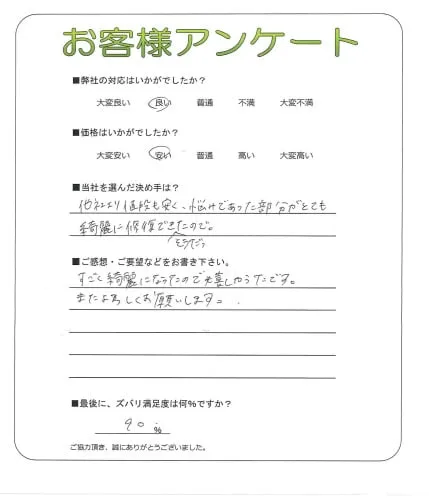 お客様アンケート
■弊社の対応はいかがでしたか？
大変良い 良い 普通 不満 大変不満
■価格はいかがでしたか？
大変安い 安い 普通 高い 大変高い
■当社を選んだ決め手は？
他社より値段も安く、悩みであった部分がとても
綺麗に修復できたので。
そうだっ
■ご感想・ご要望などをお書き下さい。
すごく綺麗になったので大喜しかったです。
またよろしくお願いします。
■最後に、ズバリ満足度は何%ですか？
90 %
ご協力頂き、誠にありがとうございました。